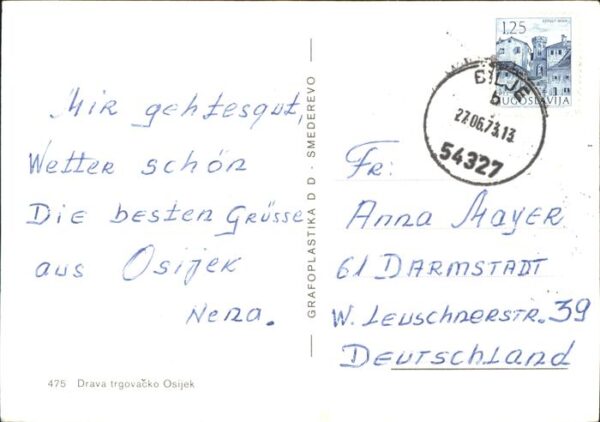 Mir gehtesgut,
Wetter schön
Die besten Grüsse
aus Osijek
Nena.
475 Drava trgovačko Osijek
GRAFOPLASTIKA D D - SMEDEREVO
1.25
JUGOSLAVIJA
BILJE
b
27.06.73.13
54327
Fr:
Anna Mayer
61 DARMSTADT
W. Leuschnerstr. 39
Deutschland